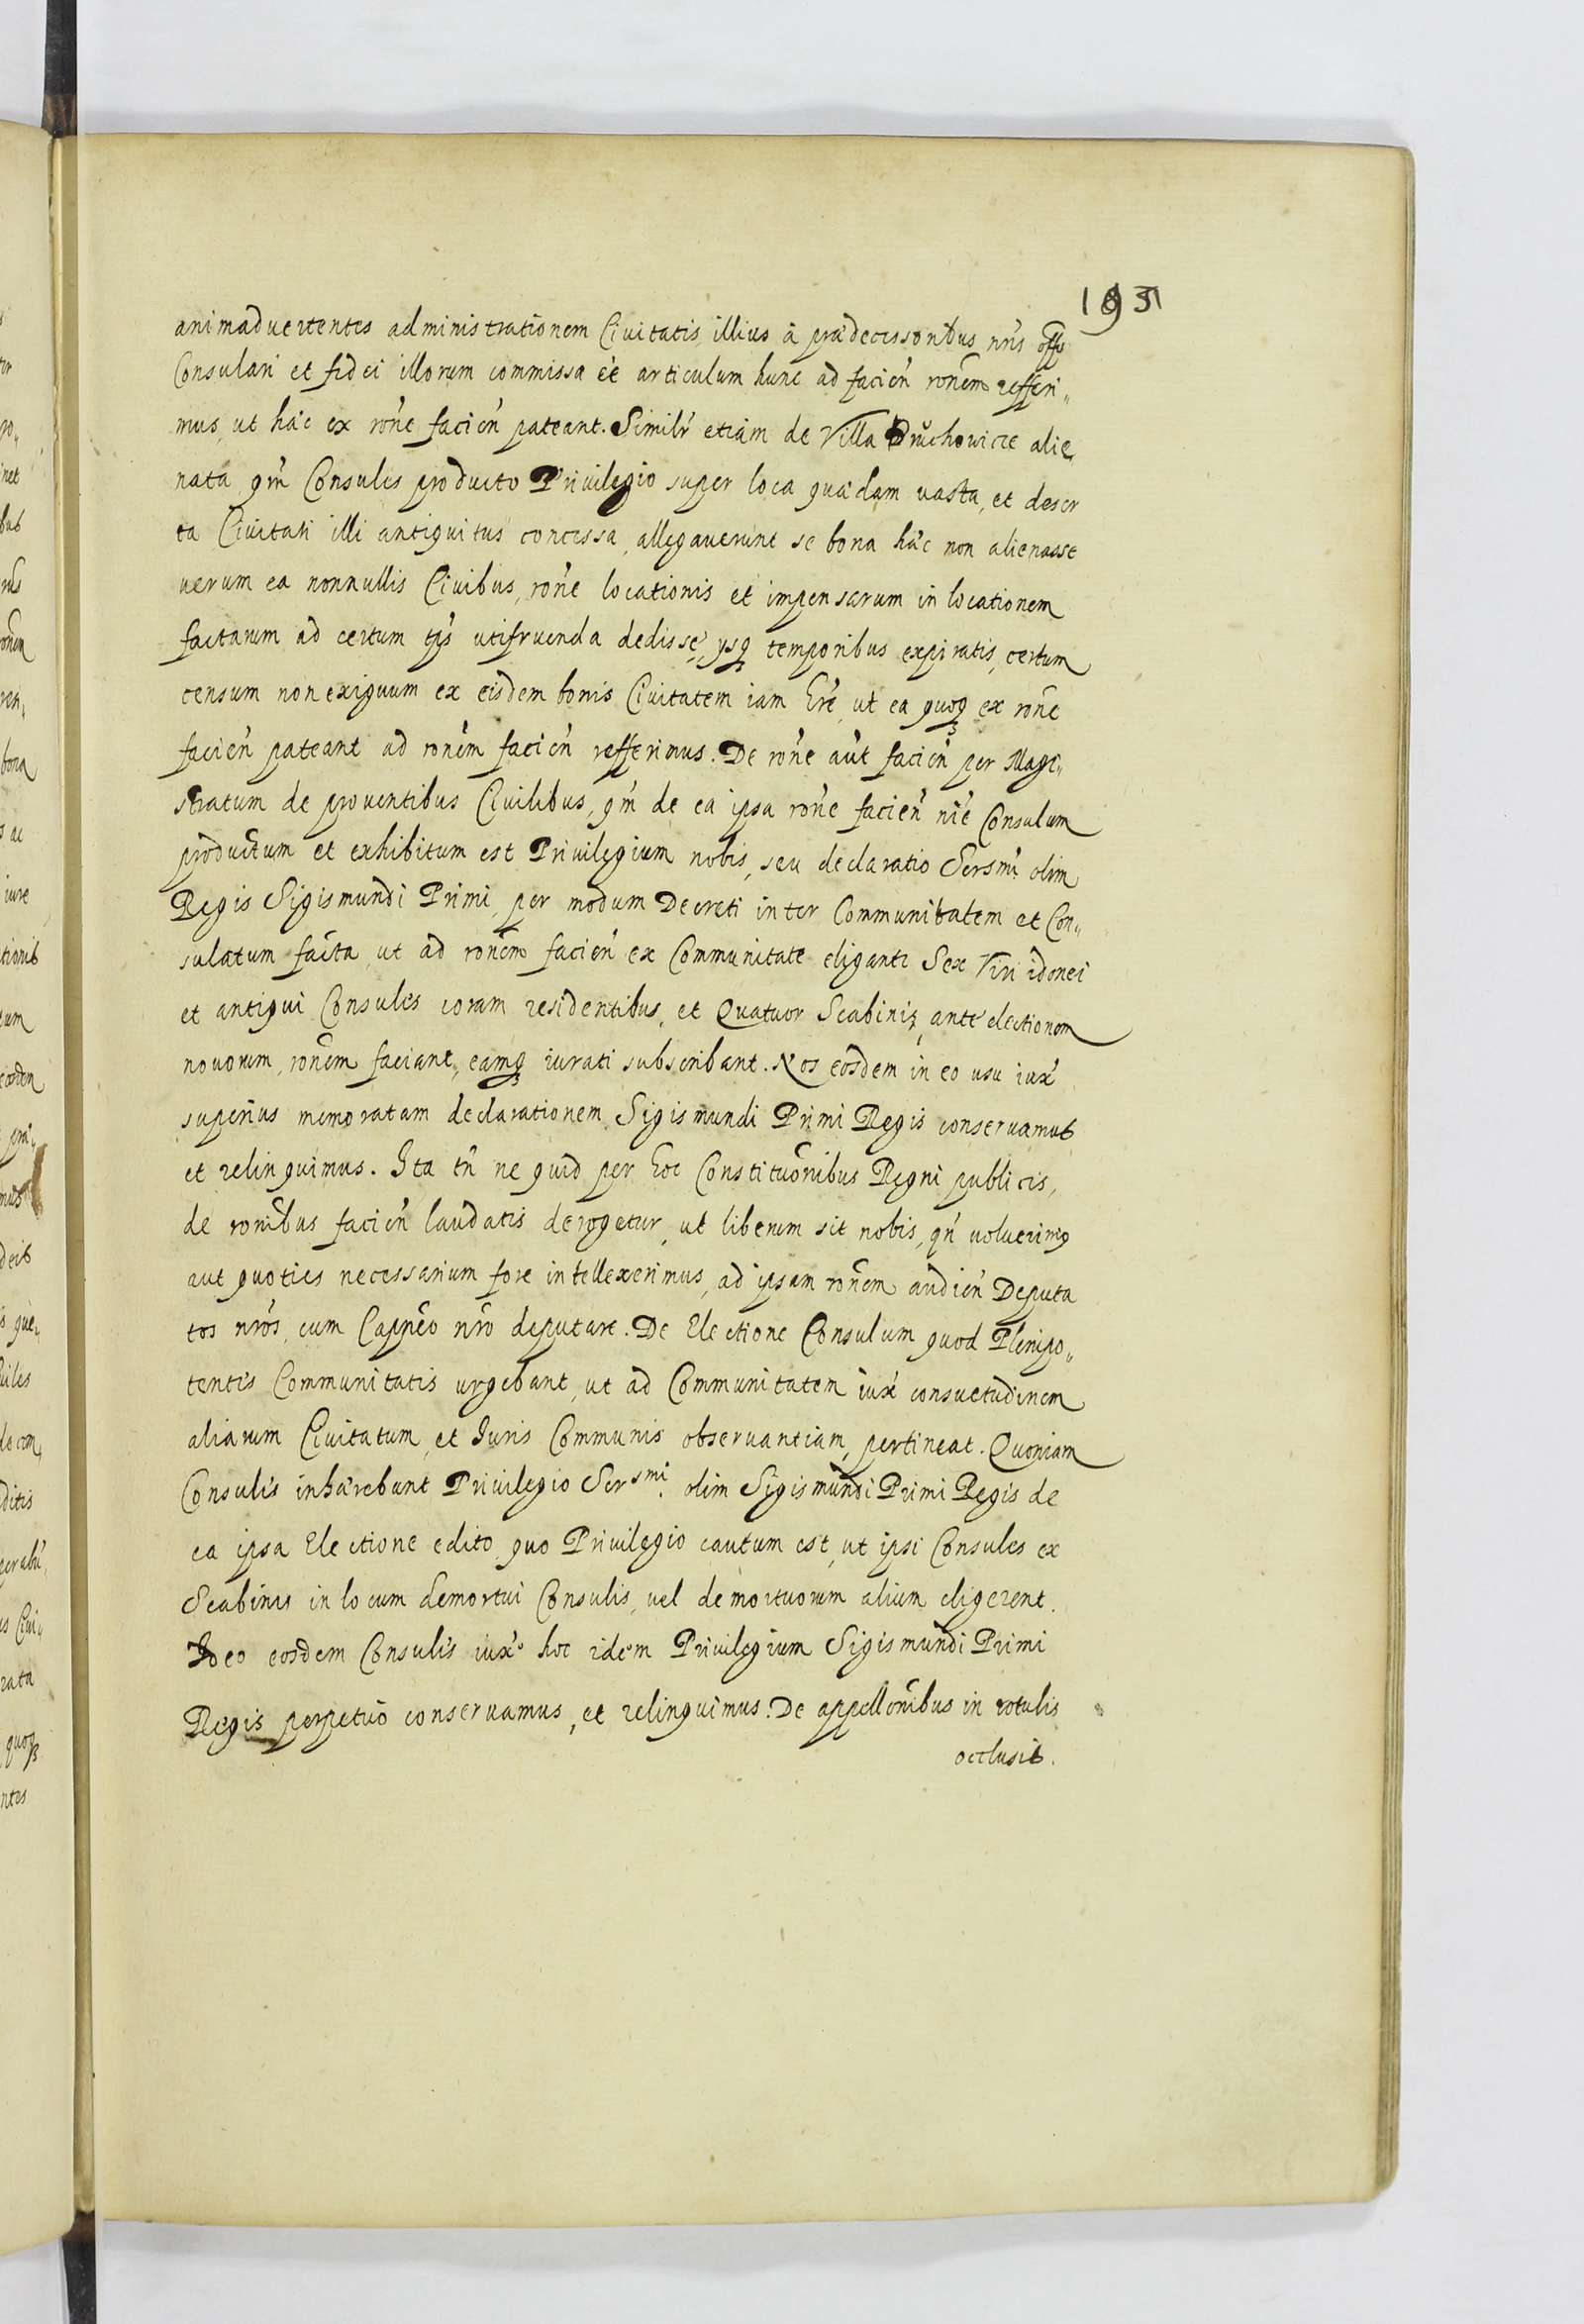 193
animaduertentes administrationem Ciuitatis illius à prædecessoribus nris offo
Consulari et fidei illorum commissa eē articulum hunc ad facien̄ ronem refferi„
mus, ut hæc ex rone facien̄ pateant. Similr etiam de Villa Druchowicze alie„
nata qm̄ Consules producto Priuilegio super loca quædam uasta, et deser
ta Ciuitati illi antiquitus concessa, allegauerunt se bona hæc non alienasse
uerum ea nonnullis Ciuibus, rone locationis et impensarum in locationem
factarum ad certum tps utifruenda dedisse, ysq temporibus expiratis, certum
censum non exiguum ex eisdem bonis Ciuitatem iam hre, ut ea quoq ex rone
facien̄ pateant ad ronem facien̄ refferimus. De rone aut facien̄ per Magi„
stratum de prouentibus Ciuilibus, qm̄ de ea ipsa rone facien̄ nōie Consulum
productum et exhibitum est Priuilegium nobis, seu declaratio Sersmi olim
Regis Sigismundi Primi, per modum Decreti inter Communitatem et Con„
sulatum facta, ut ad ronem facien̄ ex Communitate eligantr Sex Viri idonei
et antiqui Consules coram residentibus, et Quatuor Scabinis, ante electionem
nouorum, ronem faciant, eamq iurati subscribant. Nos eosdem in eo usu iux
superius memoratam declarationem Sigismundi Primi Regis conseruamus
et relinquimus. Ita tn̄ ne quid per hoc Constitutionibus Regni publicis,
de ronibus facien̄ laudatis derogetur, ut liberum sit nobis, qn̄ uoluerimq
aut quoties necessarium fore intellexerimus, ad ipsam ronem audien̄ Deputa
tos nros, cum Capneo nro deputare. De Electione Consulum quod Plenipo„
tentes Communitatis urgebant, ut ad Communitatem iux consuetudinem
aliarum Ciuitatum, et Iuris Communis obseruantiam, pertineat. Quoniam
Consules inhærebant Priuilegio Sersmi olim Sigismundi Primi Regis de
ea ipsa Electione edito, quo Priuilegio cautum est, ut ipsi Consules ex
Scabinis in locum demortui Consulis, uel demortuorum alium eligerent.
Ideo eosdem Consules iux hoc idem Priuilegium Sigismundi Primi
Regis perpetuo conseruamus, et relinquimus. De appellonibus in rotulis
occlusis.